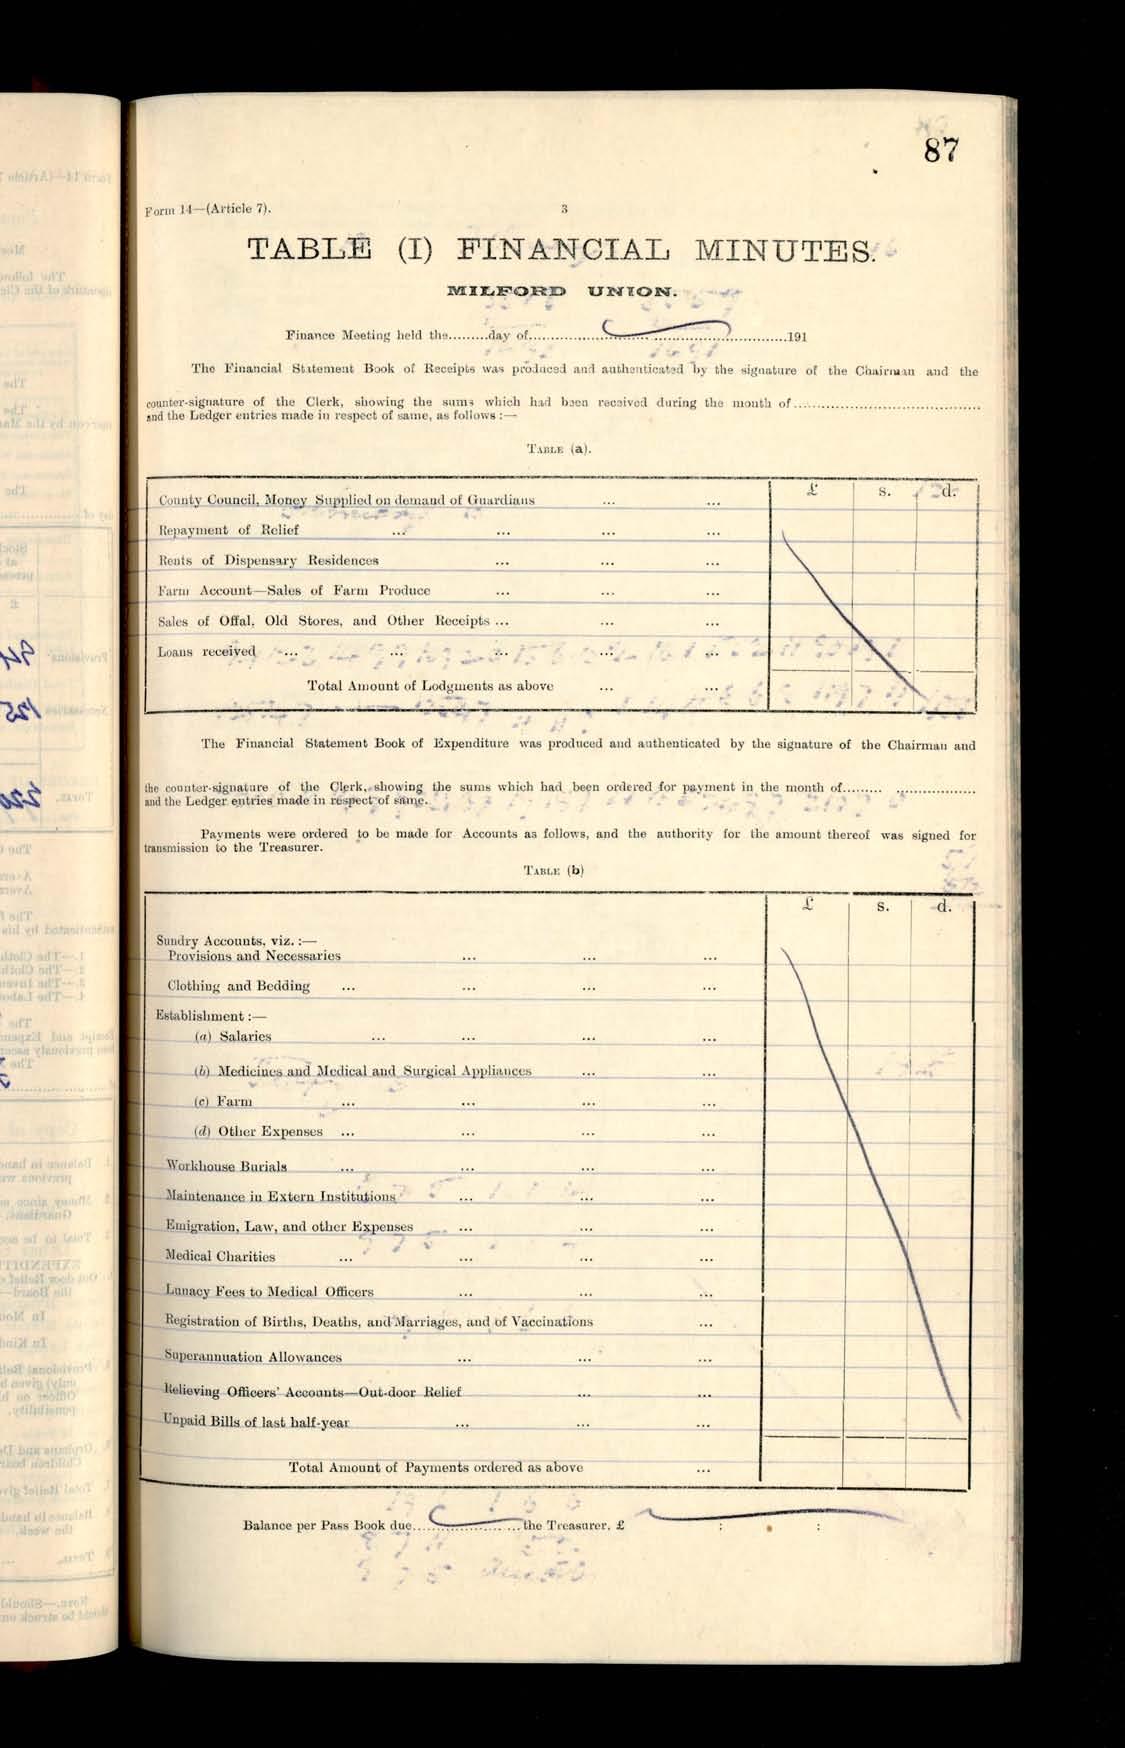 87
Form 14—(Article 7).
3
TABLE (I) FINANCIAL MINUTES.
MILFORD UNION.
Finance Meeting held the.........day of..........................................................191
The Financial Statement Book of Receipts was produced and authenticated by the signature of the Chairman and the
counter-signature of the Clerk, showing the sums which had been received during the month of..........................................
and the Ledger entries made in respect of same, as follows :—
TABLE (a).
£ s. d.
County Council, Money Supplied on demand of Guardians ... ...
Repayment of Relief ... ... ... ...
Rents of Dispensary Residences ... ... ...
Farm Account—Sales of Farm Produce ... ... ...
Sales of Offal, Old Stores, and Other Receipts ... ... ...
Loans received ... ... ... ... ...
Total Amount of Lodgments as above ... ...
The Financial Statement Book of Expenditure was produced and authenticated by the signature of the Chairman and
the counter-signature of the Clerk, showing the sums which had been ordered for payment in the month of......... ..................
and the Ledger entries made in respect of same.
Payments were ordered to be made for Accounts as follows, and the authority for the amount thereof was signed for
transmission to the Treasurer.
TABLE (b)
£ s. d.
Sundry Accounts, viz. :—
Provisions and Necessaries ... ... ...
Clothing and Bedding ... ... ... ...
Establishment :—
(a) Salaries ... ... ... ...
(b) Medicines and Medical and Surgical Appliances ... ...
(c) Farm ... ... ... ...
(d) Other Expenses ... ... ... ...
Workhouse Burials ... ... ... ...
Maintenance in Extern Institutions ... ... ...
Emigration, Law, and other Expenses ... ... ...
Medical Charities ... ... ... ...
Lunacy Fees to Medical Officers ... ... ...
Registration of Births, Deaths, and Marriages, and of Vaccinations ...
Superannuation Allowances ... ... ...
Relieving Officers' Accounts—Out-door Relief ... ...
Unpaid Bills of last half-year ... ... ...
Total Amount of Payments ordered as above ...
Balance per Pass Book due.................. ...the Treasurer, £ : :